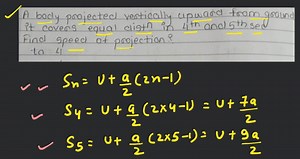 A body projected vertically upward from ground
it covers equal disth in 4th and 5th sec
Find speed of projection?
Sn = U + a/2 (2n-1)
S4 = U + a/2 (2x4-1) = U + 7a/2
S5 = U + a/2 (2x5-1) = U + 9a/2